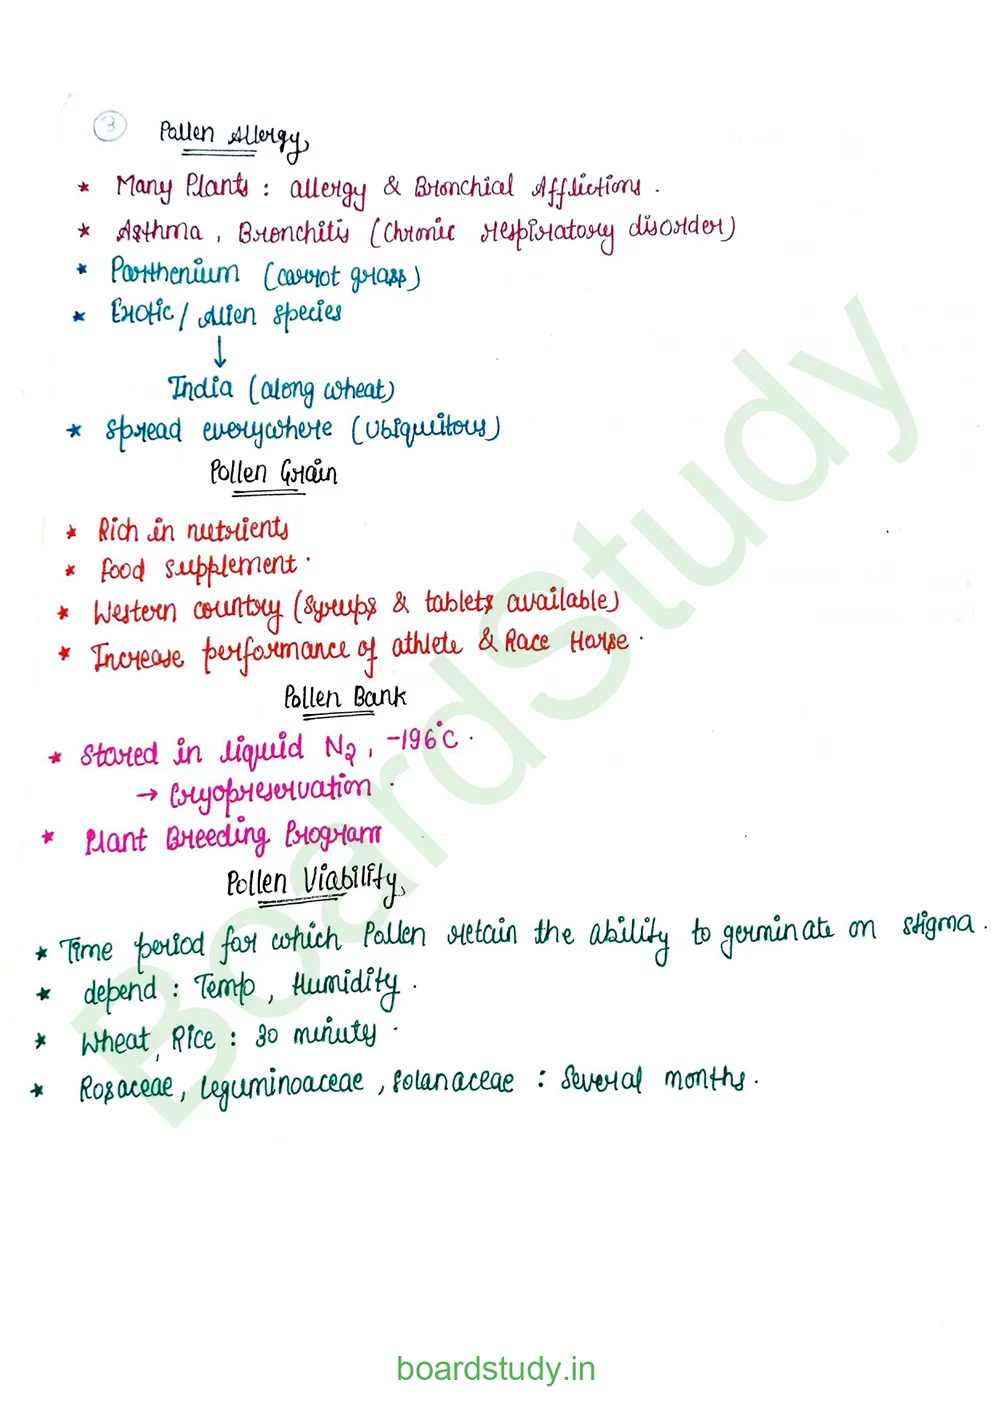 3 Pollen Allergy
* Many Plants : allergy & Bronchial Afflictions .
* Asthma , Bronchitis (Chronic respiratory disorder)
* Parthenium (carrot grass)
* Exotic / Alien species
↓
India (along wheat)
* Spread everywhere (Ubiquitous)
Pollen Grain
* Rich in nutrients
* food supplement .
* Western country (syrups & tablets available)
* Increase performance of athlete & Race Horse .
Pollen Bank
* Stored in liquid N2 , -196°C .
→ Cryopreservation .
* Plant Breeding Program
Pollen Viability
* Time period for which Pollen retain the ability to germinate on stigma .
* depend : Temp , Humidity .
* Wheat , Rice : 30 minuty .
* Rosaceae , leguminoaceae , solanaceae : Several months .
BoardStudy
boardstudy.in